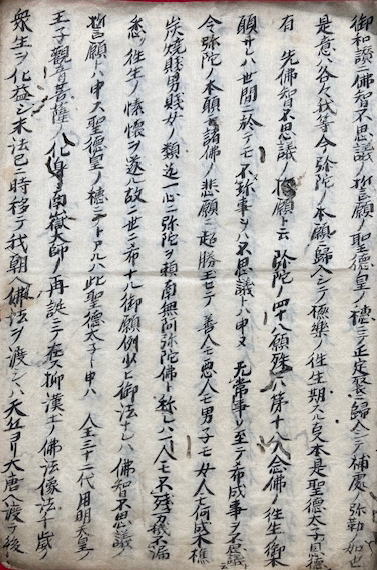 御和讃ニ佛智不思議ノ誓願ノ聖德皇ノ穗ニテ正定聚ニ歸入シテ補處ノ弥勒ノ如也
是意ハ各々我等今弥陀ノ本願ニ歸入シテ極樂ノ往生期スル㕝本是聖德太子ノ恩德
有 先佛智不思議ノ誓願ト云 弥陀ノ四十八願殊ニハ第十八ノ念佛ノ往生御本
願サレハ世間ニ於テモ不珍事シハ不思議ハ申又 尤常事ニ至テ希成事ヲ不思議
今弥陀ノ本願ハ諸佛ノ悲願ニ超勝玉ヒテ善人モ悪人モ男子モ女人モ何成木樵
炭燒賤男賤女ノ類迄一心ニ弥陀ヲ頼南無阿弥陀佛ト称レハ一人モ不残一機不漏
悉ク往生ノ懐ヲ遂ル故ニ世ニ希ナル御願例少ヒ御法ナレハ佛智不思議ノ
誓願ハ申ス聖德皇ノ穗ニテトアルハ此聖德太子ト申ハ 人王三十二代用明天皇ノ
王子觀音菩薩ノ化身南嶽大師ノ再誕ニテ在ス抑漢土ノ佛法像法千歳
衆生ヲ化益シ末法已ニ時移テ我朝ニ佛法ヲ渡シハ天竺ヨリ大唐ヘ渡テ後